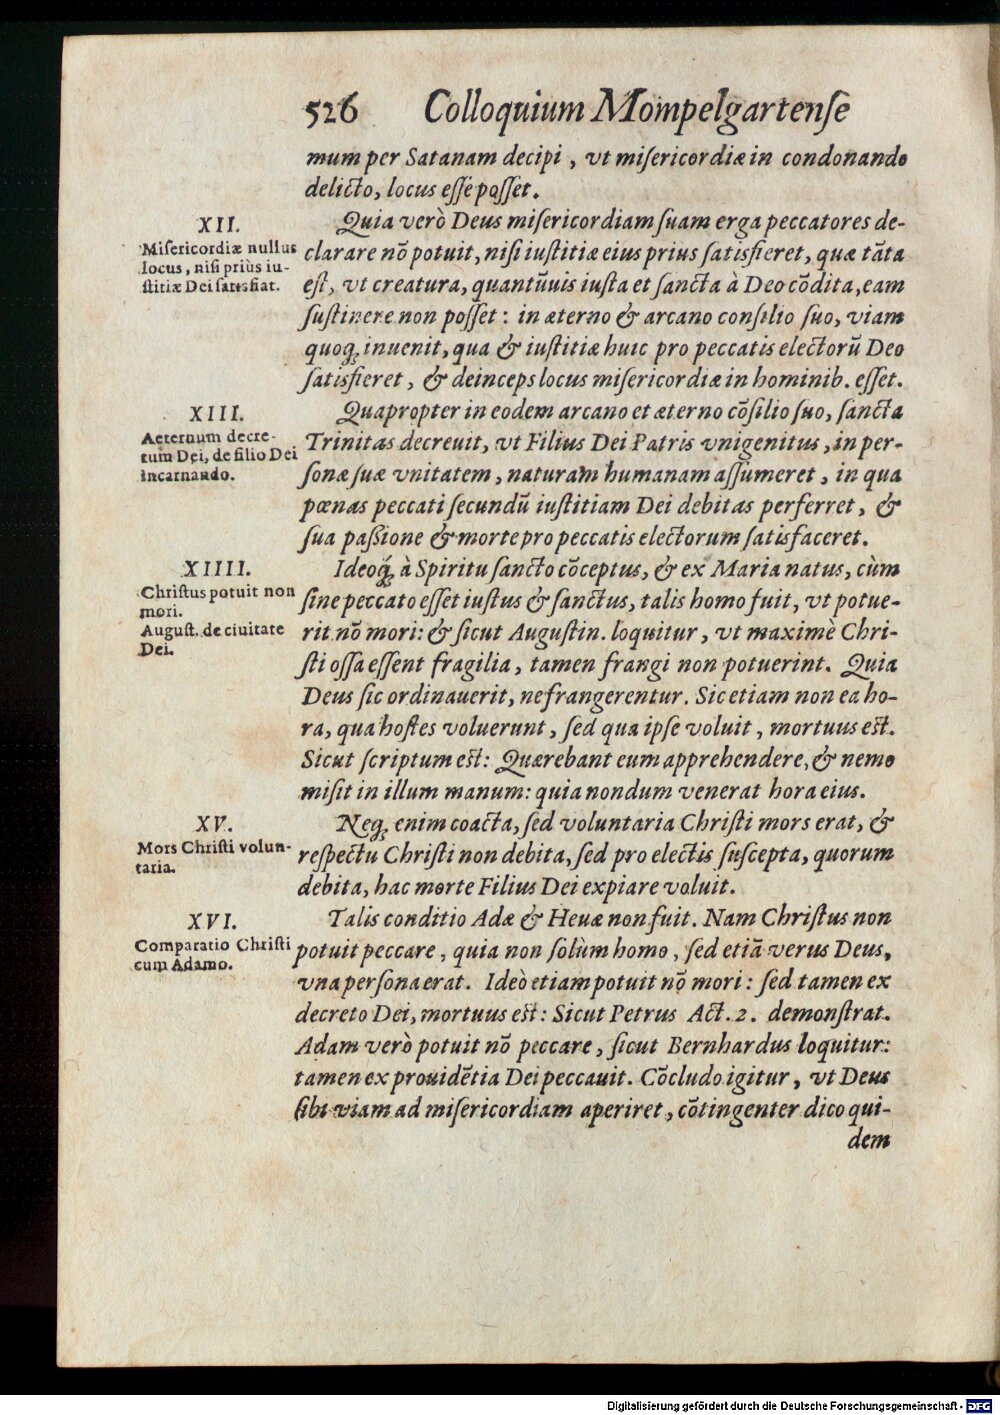 526 Colloquium Mompelgartenſe
mum per Satanam decipi, vt miſericordiæ in condonando
delicto, locus eſſe poſſet.
XII.
Miſericordiæ nullus
locus, niſi priùs iu-
ſtitiæ Dei ſatisfiat.
Quia verò Deus miſericordiam ſuam erga peccatores de-
clarare nõ potuit, niſi iuſtitiæ eius prius ſatisfieret, quæ tãta
eſt, vt creatura, quantũuis iuſta et ſancta à Deo cõdita, eam
ſuſtinere non poſſet: in æterno & arcano conſilio ſuo, viam
quoq; inuenit, qua & iuſtitiæ huic pro peccatis electorũ Deo
ſatisfieret, & deinceps locus miſericordiæ in hominib. eſſet.
XIII.
Aeternum decre-
tum Dei, de filio Dei
incarnando.
Quapropter in eodem arcano et æterno cõſilio ſuo, ſancta
Trinitas decreuit, vt Filius Dei Patris vnigenitus, in per-
ſonæ ſuæ vnitatem, naturam humanam aſſumeret, in qua
pœnas peccati ſecundũ iuſtitiam Dei debitas perferret, &
ſua paſsione & morte pro peccatis electorum ſatisfaceret.
XIIII.
Chriſtus potuit non
mori.
Auguſt. de ciuitate
Dei.
Ideoq́; à Spiritu ſancto cõceptus, & ex Maria natus, cùm
ſine peccato eſſet iuſtus & ſanctus, talis homo fuit, vt potue-
rit nõ mori: & ſicut Auguſtin. loquitur, vt maximè Chri-
ſti oſſa eſſent fragilia, tamen frangi non potuerint. Quia
Deus ſic ordinauerit, ne frangerentur. Sic etiam non ea ho-
ra, qua hoſtes voluerunt, ſed qua ipſe voluit, mortuus eſt.
Sicut ſcriptum eſt: Quærebant eum apprehendere, & nemo
miſit in illum manum: quia nondum venerat hora eius.
XV.
Mors Chriſti volun-
taria.
Neq; enim coacta, ſed voluntaria Chriſti mors erat, &
reſpectu Chriſti non debita, ſed pro electis ſuſcepta, quorum
debita, hac morte Filius Dei expiare voluit.
XVI.
Comparatio Chriſti
cum Adamo.
Talis conditio Adæ & Heuæ non fuit. Nam Chriſtus non
potuit peccare, quia non ſolùm homo, ſed etiã verus Deus,
vna perſona erat. Ideò etiam potuit nõ mori: ſed tamen ex
decreto Dei, mortuus eſt: Sicut Petrus Act. 2. demonſtrat.
Adam verò potuit nõ peccare, ſicut Bernhardus loquitur:
tamen ex prouidẽtia Dei peccauit. Cõcludo igitur, vt Deus
ſibi viam ad miſericordiam aperiret, cõtingenter dico qui-
dem
Digitalisierung gefördert durch die Deutsche Forschungsgemeinschaft - DFG